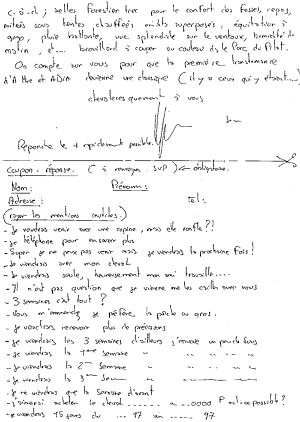 c.à.d ; selles forestier trec pour le confort des fesses, repos,
mitoés sous tentes chauffées mikts superposés, équitation à
gogo, pluie battante, vue splendide sur le ventoux, humidité du
matin, et... brouillard à couper au couteau du Parc du Pilat.
On compte sur vous pour que la première transhumance
d'A the et ADin devienne une classique (il y a ceux qui y étaient....)
chevaleresquement à vous
Répondre le + rapidement possible.
coupon-réponse. (à renvoyer SVP) obligatoire.
Nom : Prénom :
Adresse : Tel :
(rayer les mentions inutiles)
- je voudrais venir avec une copine, mais elle ronfle ??!
- je téléphone pour en savoir plus
- Super je ne peux pas venir mais je viendrais la prochaine fois !
- je viendrais avec mon cheval
- je viendrais seule, heureusement mon mari travaille....
- Il n'est pas question que je vienne me les cailler avec vous
- 3 semaines c'est tout ?
- Vous m'emmerdez je préfère la pêche au gros.
- je voudrais recevoir plus de précisions
- je viendrais les 3 semaines d'ailleurs j'envoie un pouche sous
- je viendrais la 1ère semaine " " "
- je viendrais la 2ème semaine " " "
- je viendrais la 3ème " " "
- je ne viendrais que la semaine d'avant
- j'aimerais acheter le cheval ........ à ..0000 F est-ce possible ?
- je viendrais 15 jours du ... 17 au ..... 97